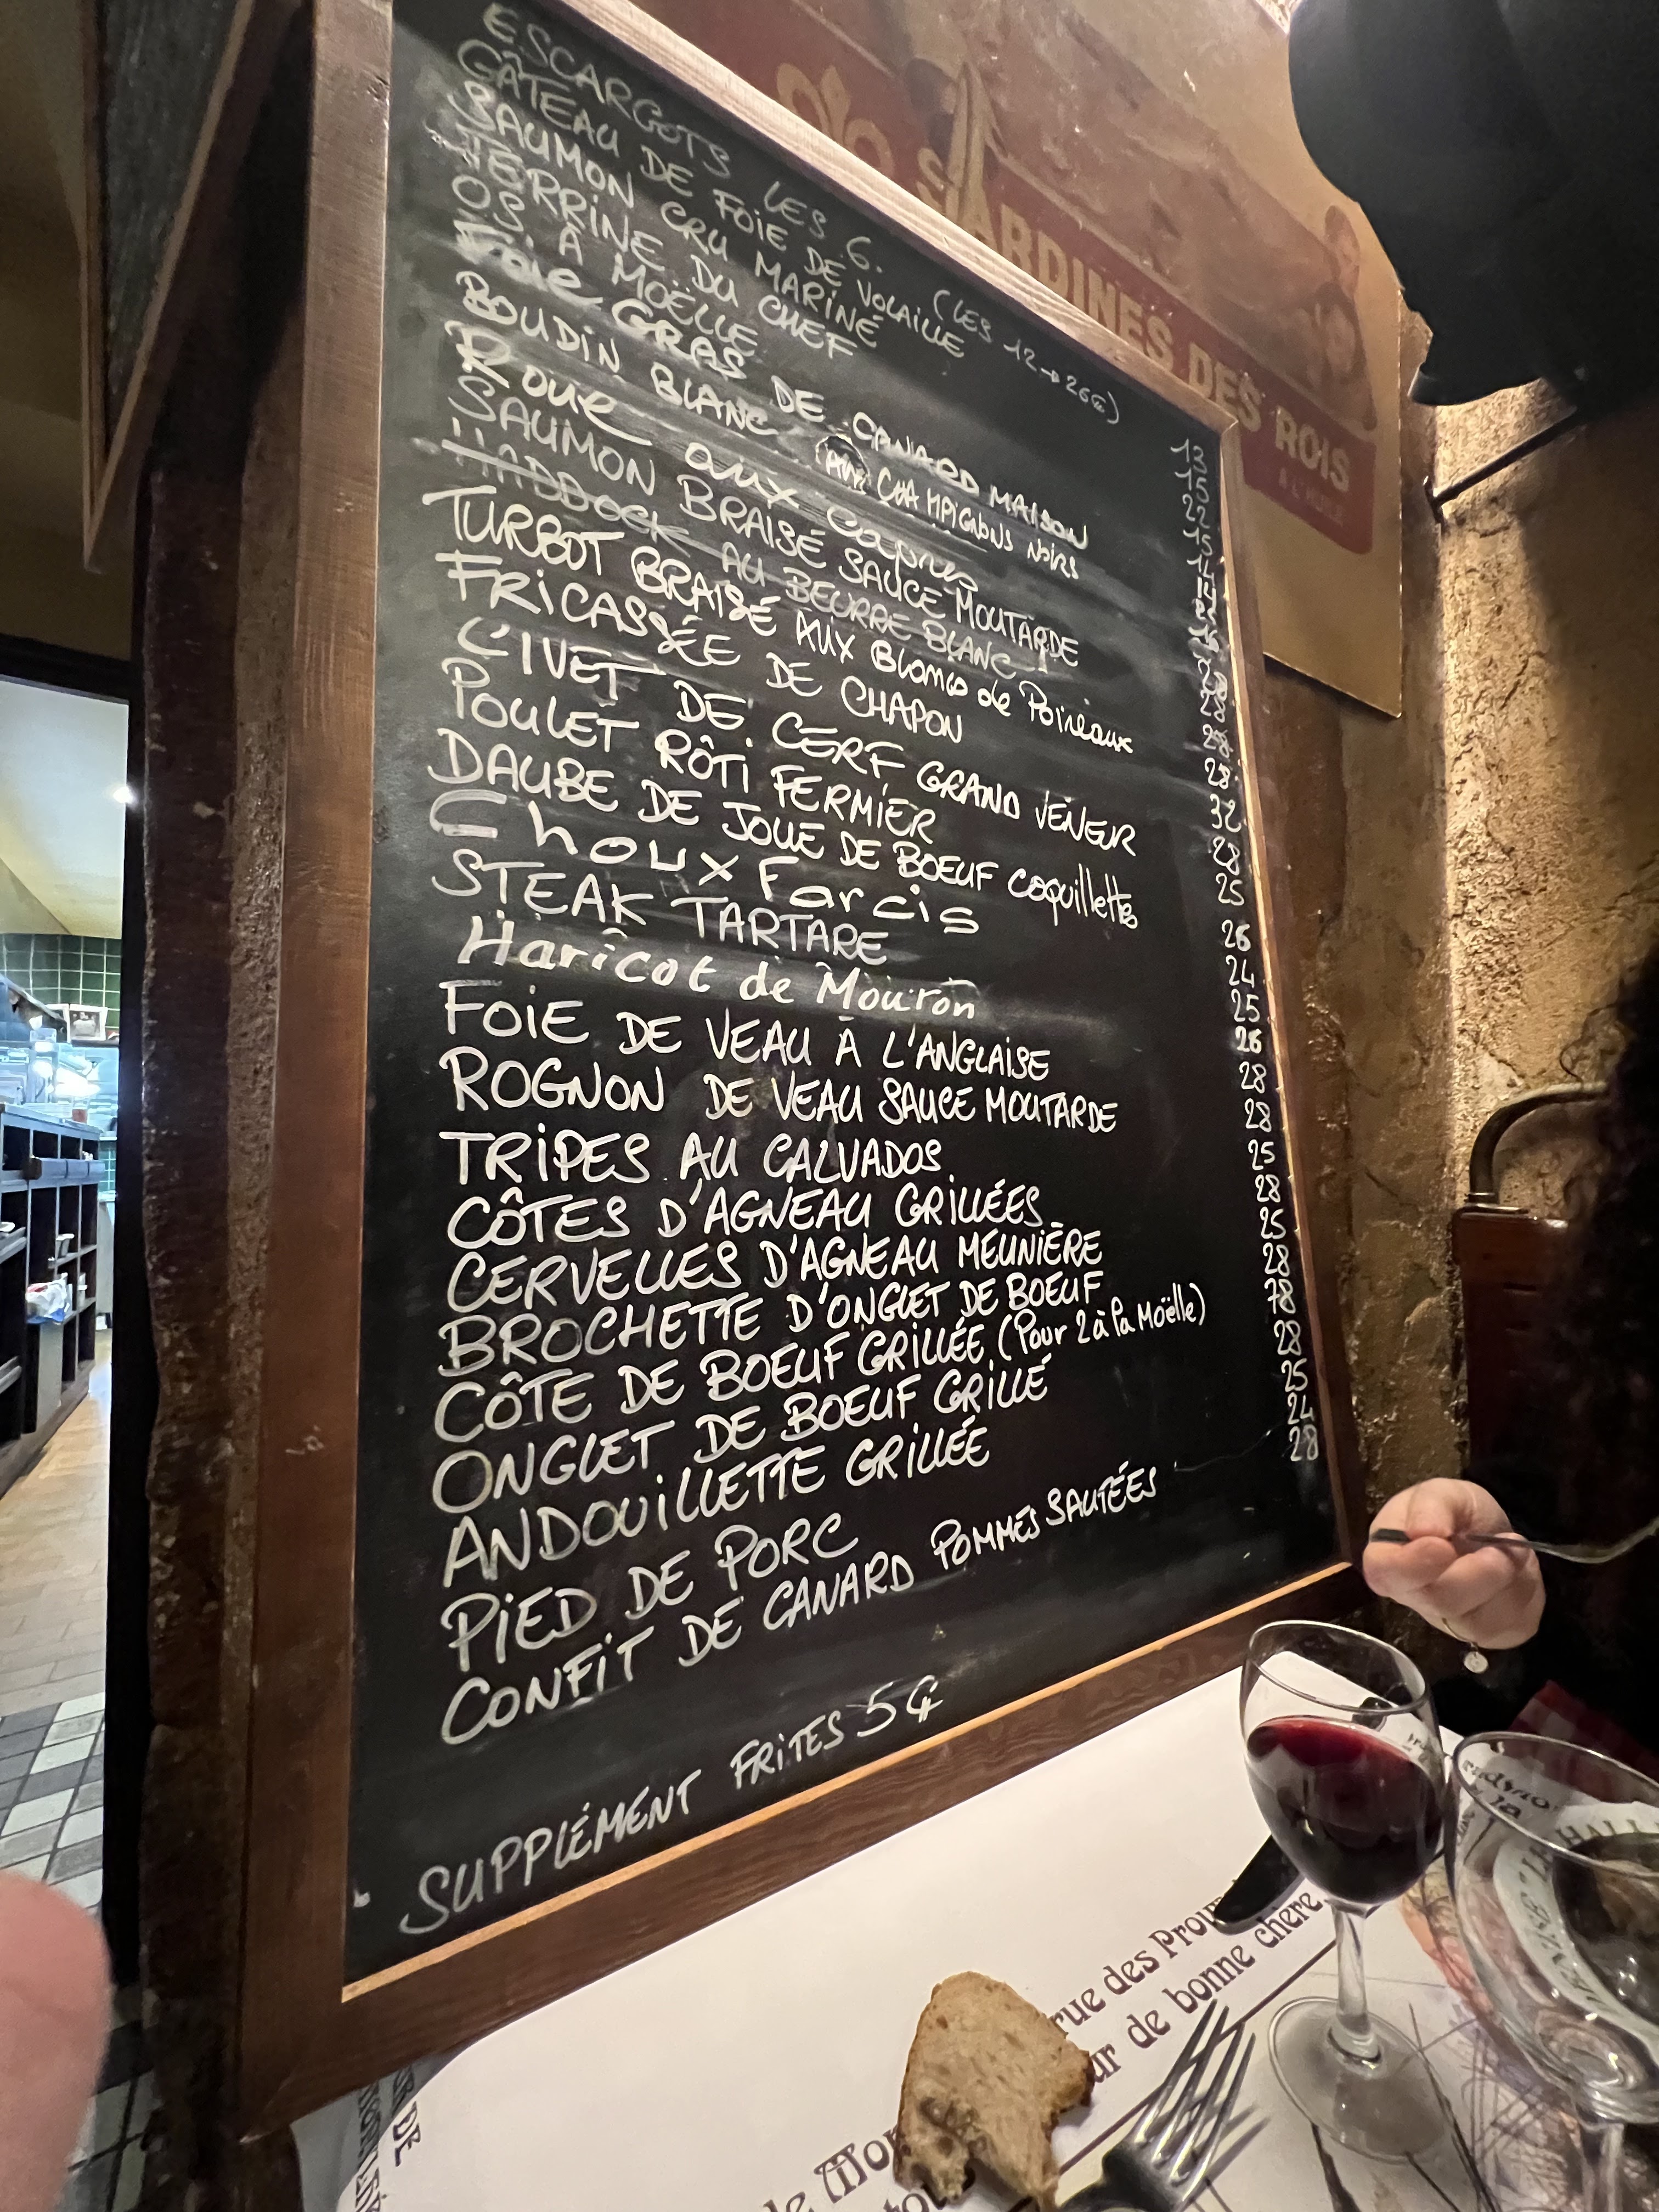 ESCARGOTS LES 6. (LES 12→26€)
GÂTEAU DE FOIE DE VOLAILLE
SAUMON CRU MARINÉ
TERRINE DU CHEF
OS À MOËLLE
Foie GRAS DE CANARD MAISON
BOUDIN BLANC AUX CHAMPIGNONS NOIRS
SAUMON BRAISÉ SAUCE MOUTARDE
HADDOCK AU BEURRE BLANC
TURBOT BRAISÉ AUX Blancs de Poireaux
FRICASSÉE DE CHAPON
CIVET DE CERF GRAND VENEUR
POULET RÔTI FERMIER
DAUBE DE JOUE DE BOEUF coquillettes
Choux Farcis
STEAK TARTARE
Haricot de Mouton
FOIE DE VEAU À L'ANGLAISE
ROGNON DE VEAU SAUCE MOUTARDE
TRIPES AU CALVADOS
CÔTES D'AGNEAU GRILLÉES
CERVELLES D'AGNEAU MEUNIÈRE
BROCHETTE D'ONGLET DE BOEUF
CÔTE DE BOEUF GRILLÉE (Pour 2 à la Moëlle)
ONGLET DE BOEUF GRILLÉ
ANDOUILLETTE GRILLÉE
PIED DE PORC
CONFIT DE CANARD POMMES SAUTÉES
SUPPLÉMENT FRITES 5€
13
15
22
15
28
32
28
25
26
24
25
26
28
28
25
28
25
28
78
28
25
24
28
SARDINES DES ROIS
À L'HUILE
rue des
de bonne chère